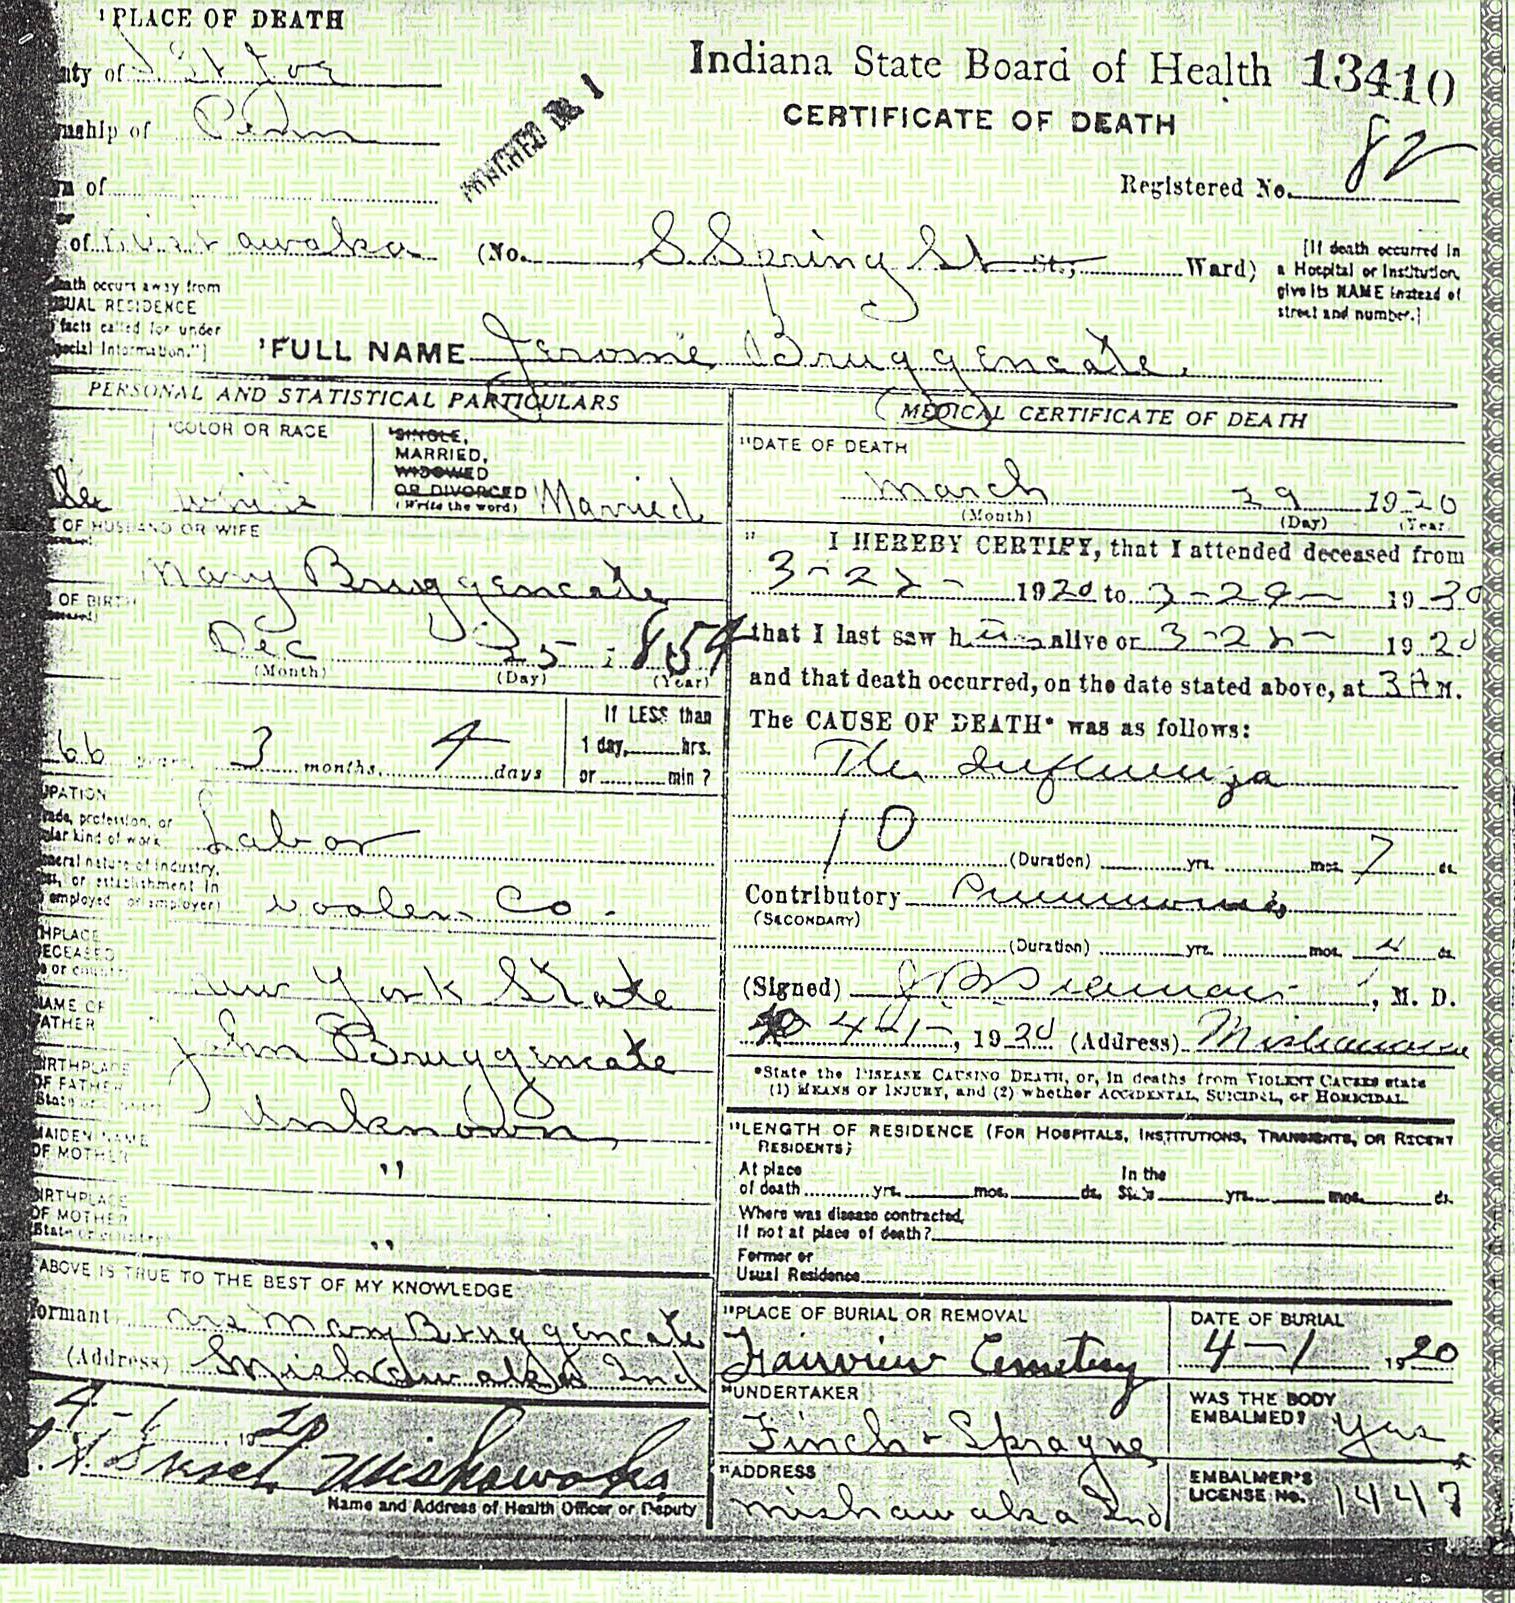 ¹PLACE OF DEATH
nty of St Joe
nship of Penn
n of
or
of awaka
Indiana State Board of Health 13410
CERTIFICATE OF DEATH
Registered No. 82
(No. S. Spring St St; Ward)
[If death occurred in
a Hospital or Institution,
give its NAME instead of
street and number.]
eath occurs away from
SUAL RESIDENCE
facts called for under
ecial Information."]
²FULL NAME Jerome Bruggencate.
PERSONAL AND STATISTICAL PARTICULARS
COLOR OR RACE
white
SINGLE,
MARRIED,
WIDOWED
OR DIVORCED
(Write the word)
Married
OF HUSBAND OR WIFE
Mary Bruggencate
OF BIRTH
Dec 25 1854
(Month) (Day) (Year)
66 years 3 months, 4 days
If LESS than
1 day, hrs.
or min?
UPATION
rade, profession, or
ular kind of work
Labor
eneral nature of industry,
ess, or establishment in
employed or employer)
Woolen Co.
HPLACE
ECEASED
e or country
New York State
NAME OF
FATHER
John Bruggencate
BIRTHPLACE
OF FATHER
Unknown
MAIDEN NAME
OF MOTHER
"
BIRTHPLACE
OF MOTHER
(State or country)
"
ABOVE IS TRUE TO THE BEST OF MY KNOWLEDGE
formant Mrs Mary Bruggencate
(Address) Mishawaka Ind
4-1 1920
Mishawaka
Name and Address of Health Officer or Deputy
MEDICAL CERTIFICATE OF DEATH
DATE OF DEATH
March 29 1920
(Month) (Day) (Year
I HEREBY CERTIFY, that I attended deceased from
1920 to 3-29- 1920
that I last saw him alive on 3-28- 1920
and that death occurred, on the date stated above, at 3 A M.
The CAUSE OF DEATH* was as follows:
Flu Influenza
10
(Duration) yrs. mos. 7 ds.
Contributory Pneumonia
(SECONDARY)
(Duration) yrs. mos. 4 ds.
(Signed) , M. D.
4-1-, 1920 (Address) Mishawaka
*State the DISEASE CAUSING DEATH, or, in deaths from VIOLENT CAUSES state
(1) MEANS OF INJURY, and (2) whether ACCIDENTAL, SUICIDAL, or HOMICIDAL.
LENGTH OF RESIDENCE (FOR HOSPITALS, INSTITUTIONS, TRANSIENTS, OR RECENT
RESIDENTS)
At place
of death yrs. mos. ds.
In the
State yrs. mos. ds.
Where was disease contracted,
If not at place of death?
Former or
Usual Residence
PLACE OF BURIAL OR REMOVAL
Fairview Cemetery
DATE OF BURIAL
4-1 1920
UNDERTAKER
Finch & Sprague
WAS THE BODY
EMBALMED? Yes
ADDRESS
Mishawaka Ind
EMBALMER'S
LICENSE No. 1447